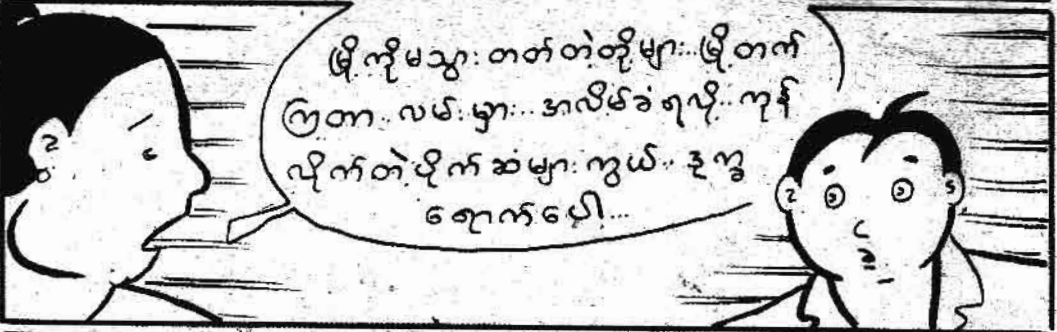 မြို့ကိုမသွားတတ်တဲ့တို့များ..မြို့တက်
ကြတာ..လမ်းမှား..အလိမ်ခံရလို့..ကုန်
လိုက်တဲ့ပိုက်ဆံများကွယ်..ဒုက္ခ
ရောက်ပေါ့...